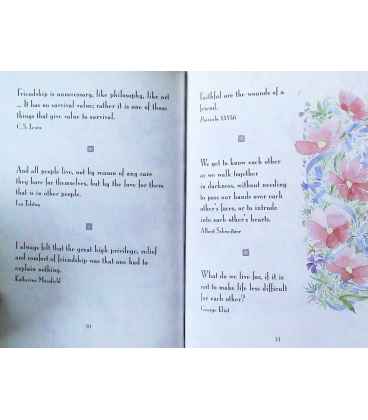 Friendship is unnecessary, like philosophy, like art
... It has no survival value; rather it is one of those
things that give value to survival.
C. S. Lewis
And all people live, not by reason of any care
they have for themselves, but by the love for them
that is in other people.
Leo Tolstoy
I always felt that the great high privilege, relief
and comfort of friendship was that one had to
explain nothing.
Katherine Mansfield
Faithful are the wounds of a
friend.
Proverbs
We get to know each other
as we walk together
in darkness, without needing
to pass our hands over each
other's faces, or to intrude
into each other's hearts.
Albert Schweitzer
What do we live for, if it is
not to make life less difficult
for each other?
George Eliot